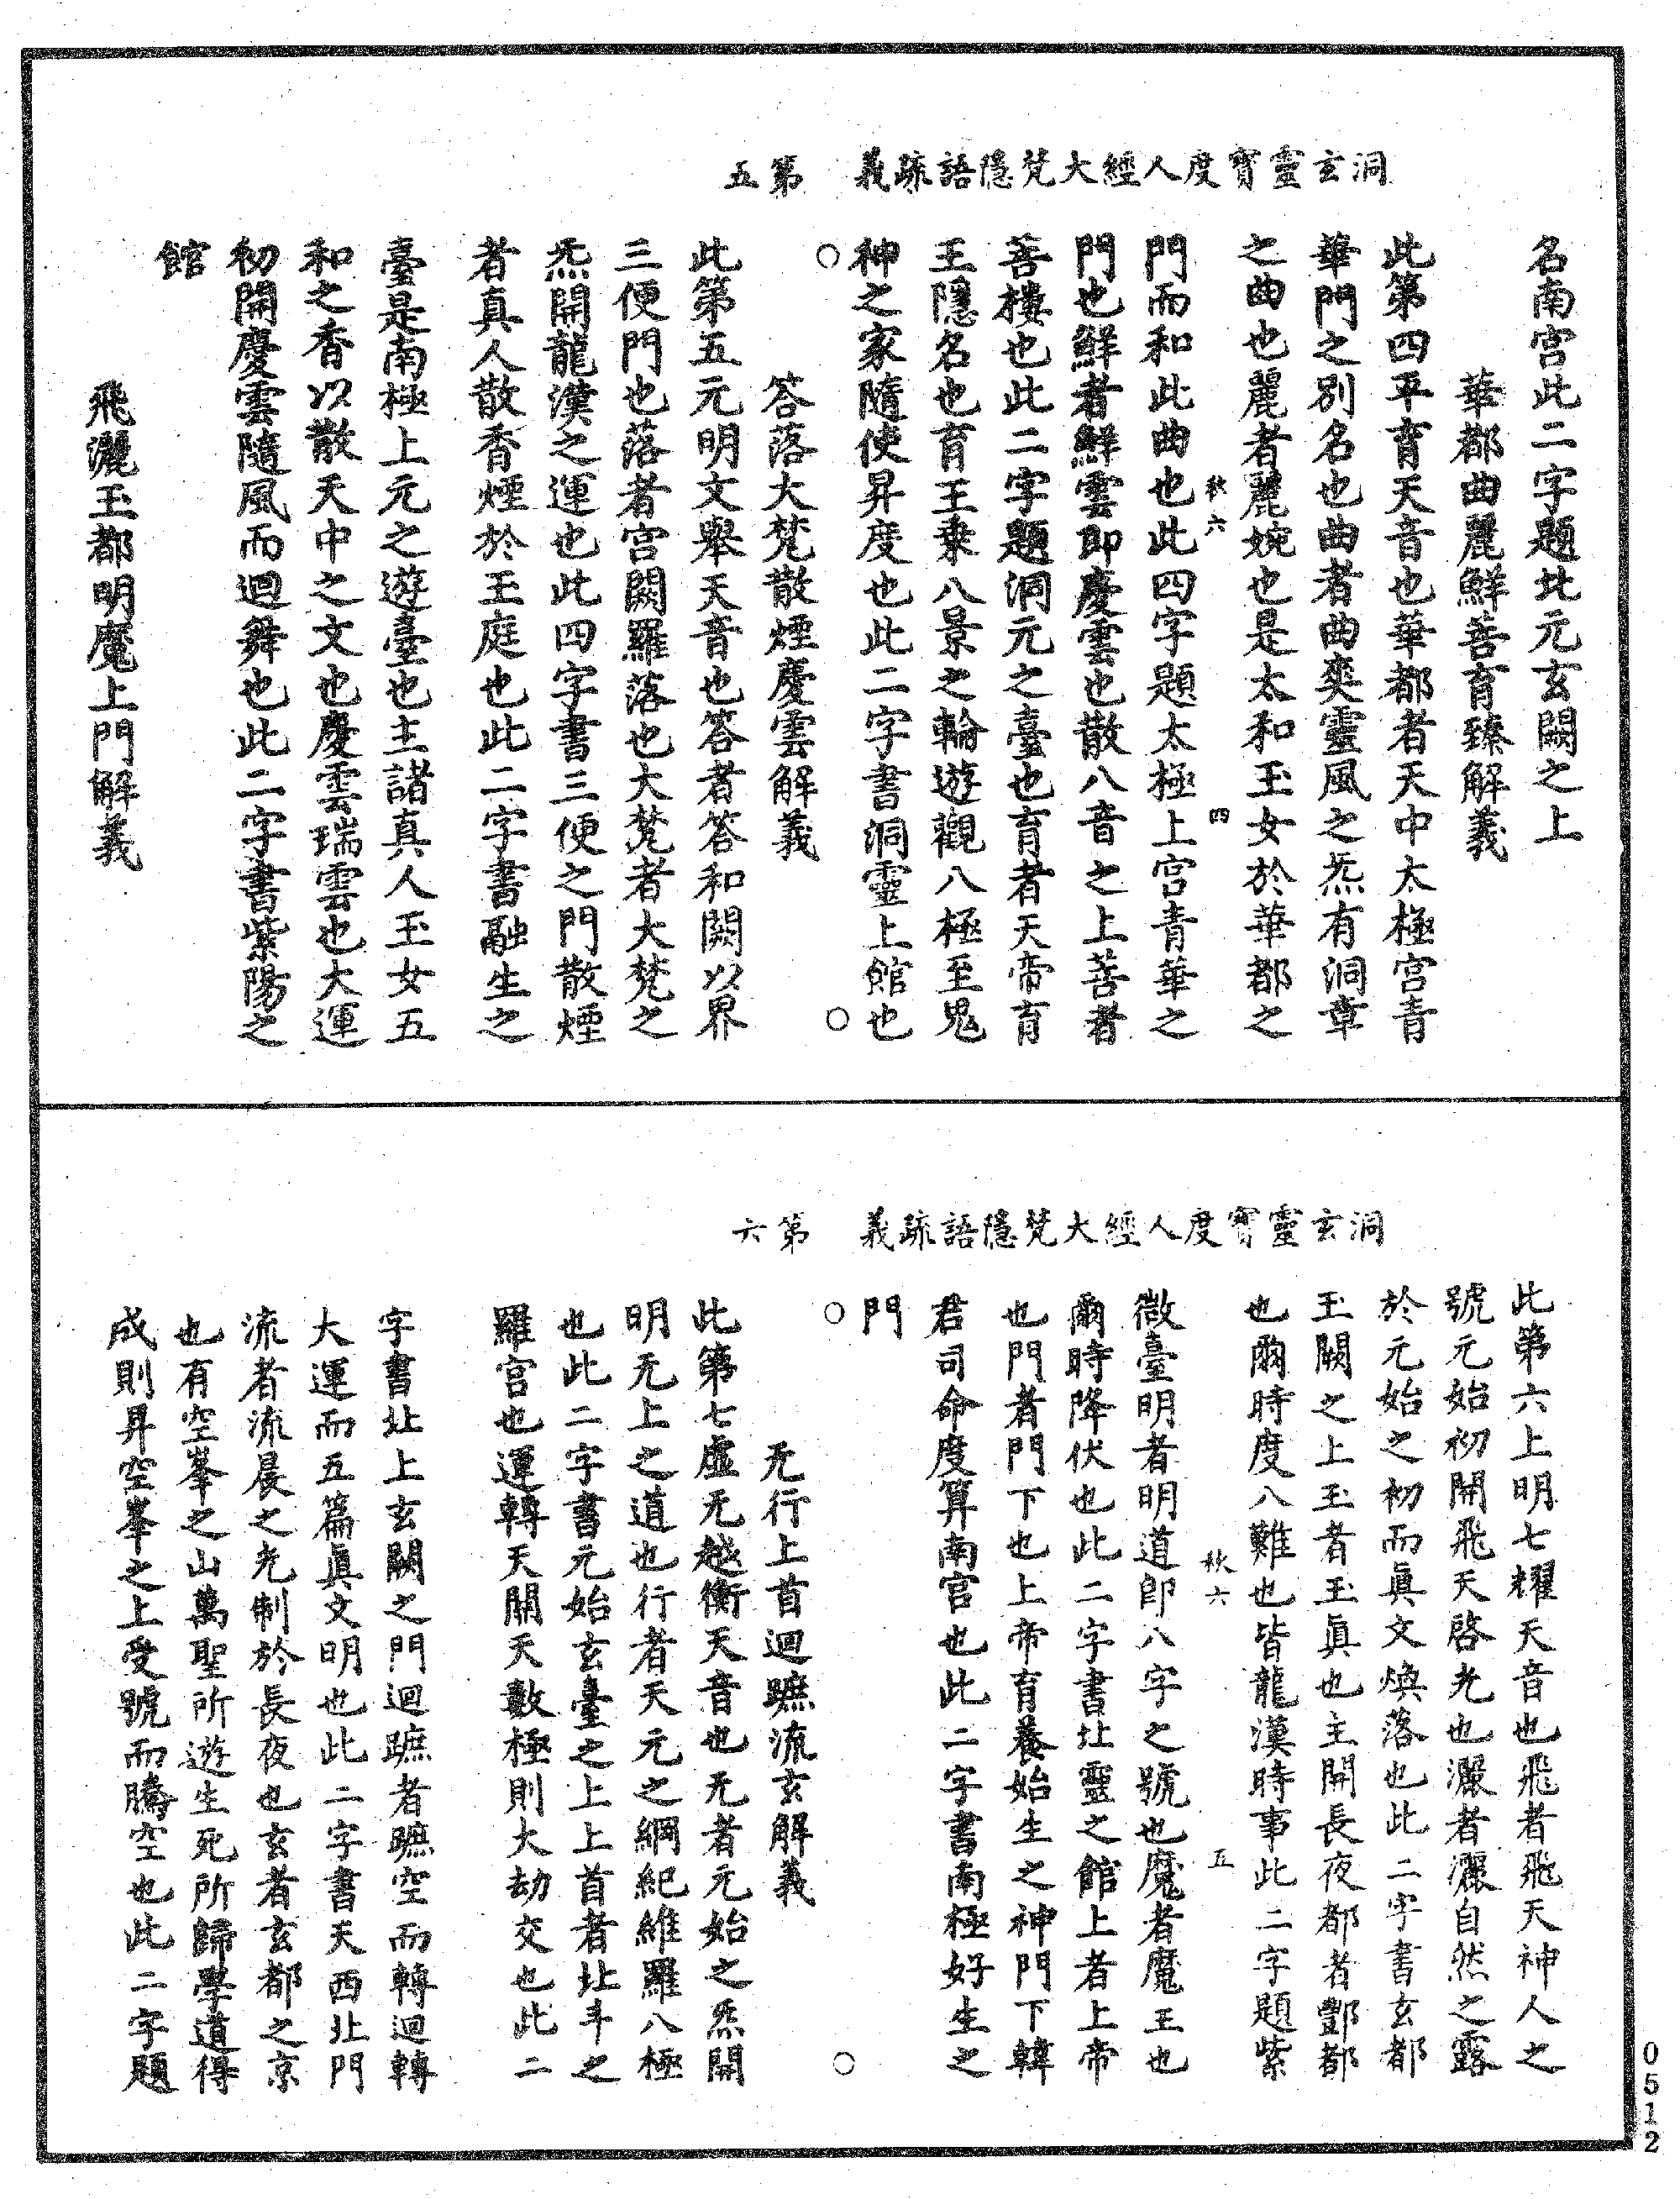 洞玄靈寶度人經大梵隱語疏義　第五
名南宫此二字題北元玄闕之上
華都曲麗鮮善育臻解義
此第四平育天音也華都者天中太極宫青
華門之別名也曲者曲奕靈風之炁有洞章
之曲也麗者麗婉也是太和玉女於華都之
秋六　四
門而和此曲也此四字題太極上宫青華之
門也鮮者鮮雲即慶雲也散八音之上善者
善樓也此二字題洞元之臺也育者天帝育
王隱名也育王乗八景之輪遊觀八極至鬼
神之家隨使昇度也此二字書洞靈上館也
○　○
答落大梵散煙慶雲解義
此第五元明文舉天音也答者答和闕以界
三便門也落者宫闕羅落也大梵者大梵之
炁開龍漢之運也此四字書三便之門散煙
者真人散香煙於王庭也此二字書融生之
臺是南極上元之遊臺也主諸真人玉女五
和之香以散天中之文也慶雲瑞雲也大運
初開慶雲隨風而迴舞也此二字書紫陽之
館
飛灑玉都明魔上門解義
洞玄靈寶度人經大梵隱語疏義　第六
此第六上明七耀天音也飛者飛天神人之
號元始初開飛天啓光也灑者灑自然之露
於元始之初而眞文煥落也此二字書玄都
玉闕之上玉者玉眞也主開長夜都者酆都
也爾時度八難也皆龍漢時事此二字題紫
秋六　五
微臺明者明道即八字之號也魔者魔王也
爾時降伏也此二字書北靈之館上者上帝
也門者門下也上帝育養始生之神門下韓
君司命度算南宫也此二字書南極好生之
門
○　○
无行上首迴蹠流玄解義
此第七虛无越衡天音也无者元始之炁開
明无上之道也行者天元之綱紀維羅八極
也此二字書元始玄臺之上上首者北斗之
羅宫也運轉天關天數極則大劫交也此二
字書北上玄闕之門迴蹠者蹠空而轉迴轉
大運而五篇眞文明也此二字書天西北門
流者流晨之光制於長夜也玄者玄都之京
也有空峯之山萬聖所遊生死所歸學道得
成則昇空峯之上受號而騰空也此二字題
0512